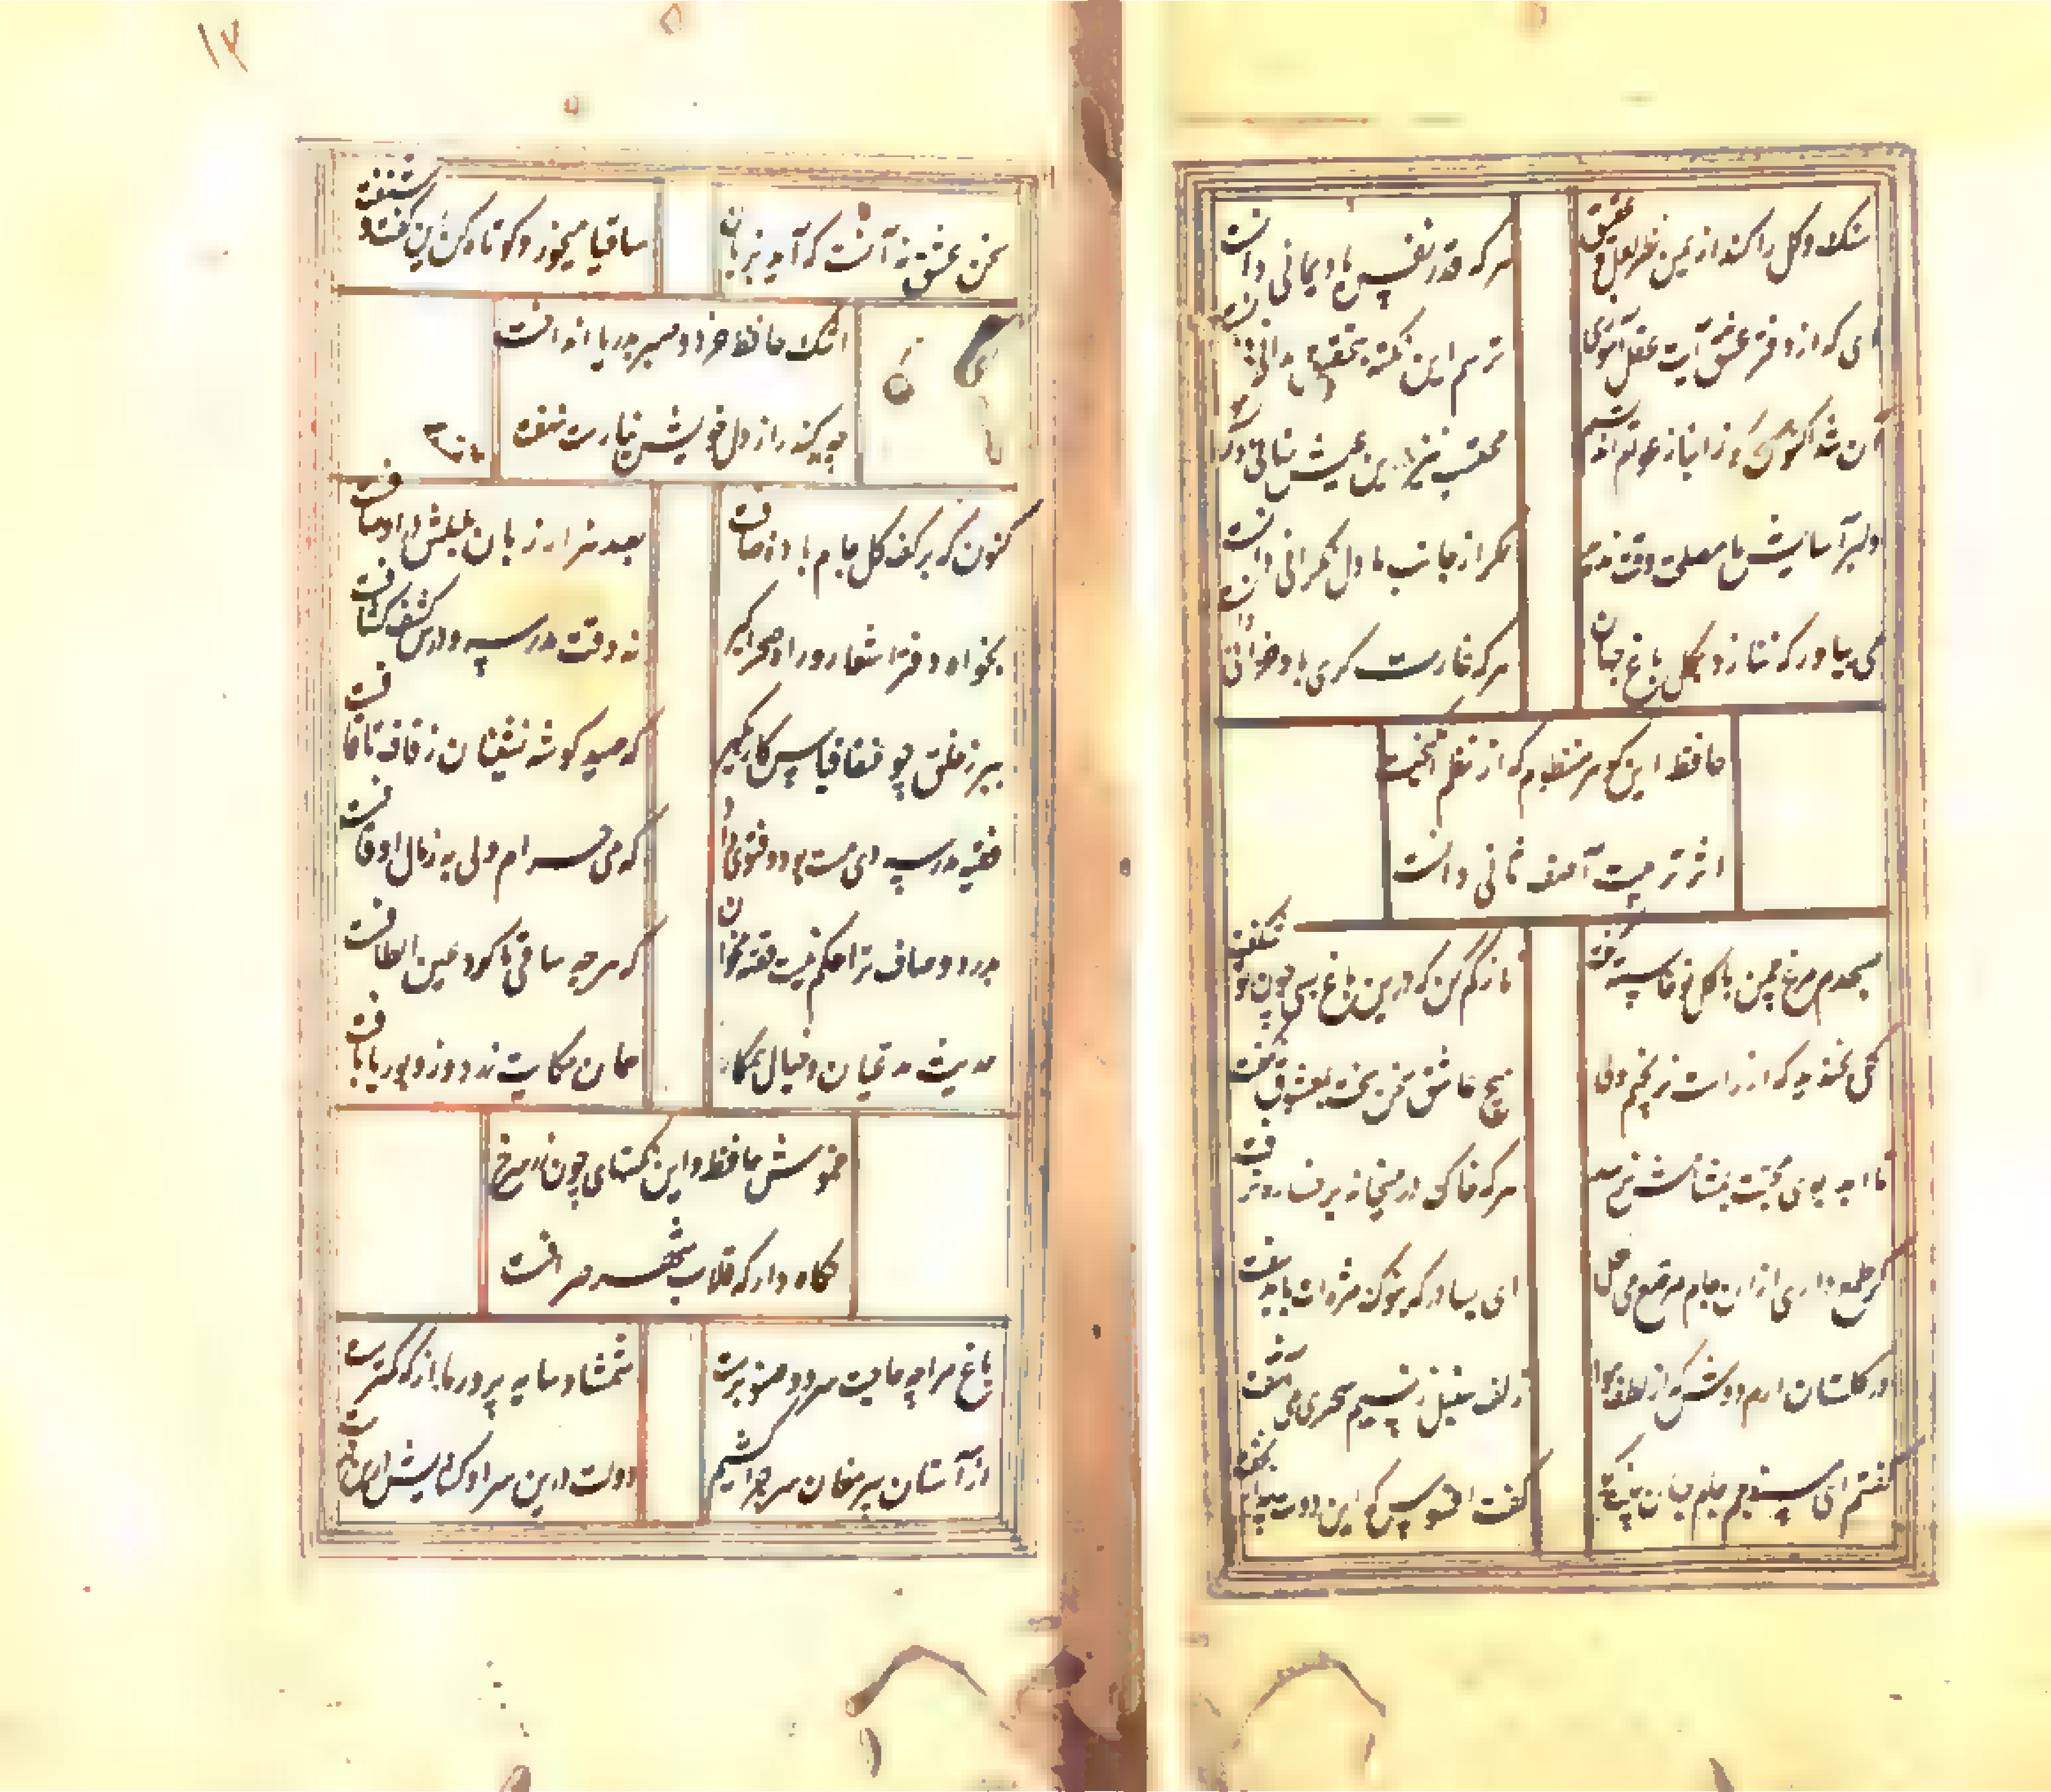 سنک و کل را کند از یمن نظر لعل و عقیق
هر که قدر نفس باد یمانی دانست
ای که از دفتر عشق آیت عقل آموزی
ترسم این نکته بتحقیق ندانی دانست
آن شد اکنون که ز ابنای عوام اندیشم
محتسب نیز ازین عیش نهانی دانست
دلبر آسایش ما مصلحت وقت ندید
ور نه از جانب ما دل نکرانی دانست
می بیاور که ننازد بکل باغ جهان
هر که غارت کری باد خزانی دانست
حافظ این کوهر منظوم که از نظم انکیخت
اثر تربیت آصف ثانی دانست
صبحدم مرغ چمن با کل نوخاسته کفت
ناز کم کن که درین باغ بسی چون تو شکفت
کل بخندید که از راست نرنجم ولی
هیچ عاشق سخن سخت بمعشوق نکفت
تا ابد بوی محبت بمشامش نرسد
هر که خاک در میخانه برخساره نرفت
کر طمع داری از ان جام مرصع می لعل
ای بسا در که بنوک مژه ات باید سفت
در کلستان ارم دوش که از لطف هوا
زلف سنبل ز نسیم سحری می آشفت
کفتم ای مسند جم جام جهان بینت کو
کفت افسوس که این دولت بیدار بخفت
سخن عشق نه آنست که آید بزبان
ساقیا می خور و کوتاه کن این کفت و شنفت
اشک حافظ خرد و صبر بدریا انداخت
چه کند راز دل خویش نیارست نهفت
کنون که بر کف کل جام باده صافست
بصد هزار زبان بلبلش در اوصافست
بخواه دفتر اشعار و راه صحرا کیر
نه وقت مدرسه و درس کشف کشافست
ببر ز خلق چو عنقا قیاس کار بکیر
که صیت کوشه نشینان ز قاف تا قافست
فقیه مدرسه دی مست بود و فتوی داد
که می حرام ولی به ز مال اوقافست
بدرد و صاف ترا حکم نیست قصه مخوان
که هر چه ساقی ما کرد عین الطافست
حدیث مدعیان و خیال همکاران
همان حکایت زردوز و بوریا بافست
خموش حافظ و این نکتهای چون زر سرخ
نکاه دار که قلاب شهر صرافست
باغ مرا چه حاجت سرو و صنوبرست
شمشاد سایه پرور ما از که کمترست
از آستان پیر مغان سر چرا کشیم
دولت درین سرا و کشایش درین درست
۱۳